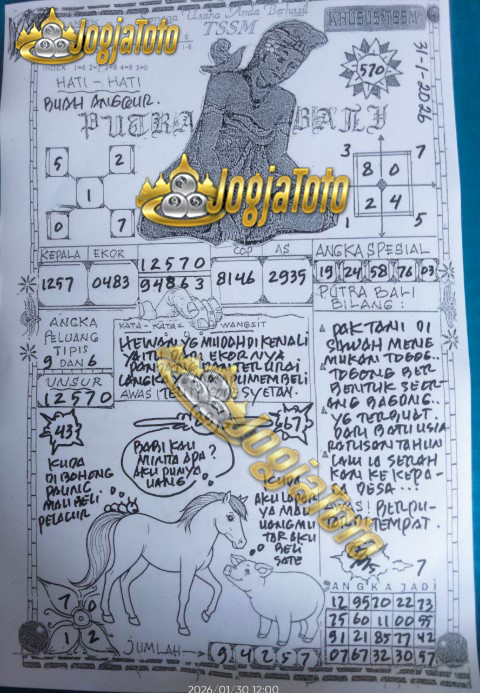 Usaha Anda Berhasil
TSSM
KHUSUS TSSM
JogjaToto
31-1-2026
570
HATI - HATI
BUAH ANGGUR.
PUTRA BALI
5 2
1
0 7
3 7
8 0
2 4
1 5
JogjaToto
KEPALA EKOR
1257 0483
12570
94863
COP AS
8146 2935
ANGKA SPESIAL
19 24 58 76 03
PUTRA BALI
BILANG:
ANGKA
PELUANG
TIPIS
9 DAN 6
UNSUR
12570
KATA - KATA WANGSIT
HEWAN YG MUDAH DI KENALI
EKORNYA
TERURAI
MEMBELI
AWAS SYETAN.
PAK TANI DI
SAWAH MENE
MUKAN TOGOG..
TOGONG BER
BENTUK SEOR
ANG BAGONG..
YG TERBUAT.
DARI BATU USIA
RATUSAN TAHUN
LALU IA SERAH
KAN KE KEPA-
DESA...
TEMPAT.
43
KUDA
DI BOHONG
PALING
MAU BELI
PELACUR
BABI KAU
MINTA APA
AKU PUNYA
UANG
?
67
KUDA
AKU LAPAR
YA MAU
UANGMU
BELI
SATE
JogjaToto
7
7 0
1 2
JUMLAH
9 4 2 5 7
ANGKA JADI
12 95 70 22 73
75 60 11 00 55
91 21 85 77 42
07 67 32 30 57
2026/01/30 12:00